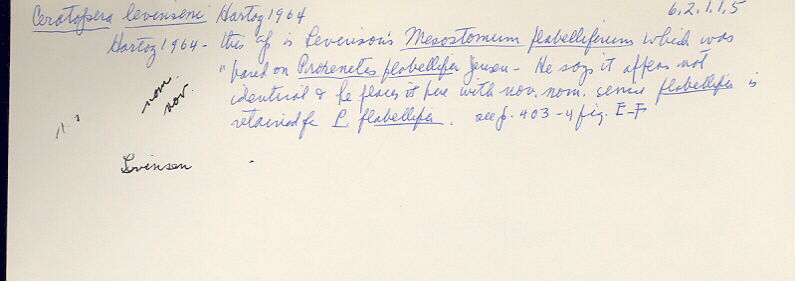 Ceratopera levinseni Hartog 1964 6.2.1.1.5
Hartog 1964 - this sp is Levinson's Mesostomum flabelliferum which was
"based on Proxenetes flabellifer Jensen - He says it appears not
identical & he places it here with nov. nom. since flabellifer is
retained for P. flabellifer. see p. 403-4 fig. E-F
nom.
nov.
Levinsen